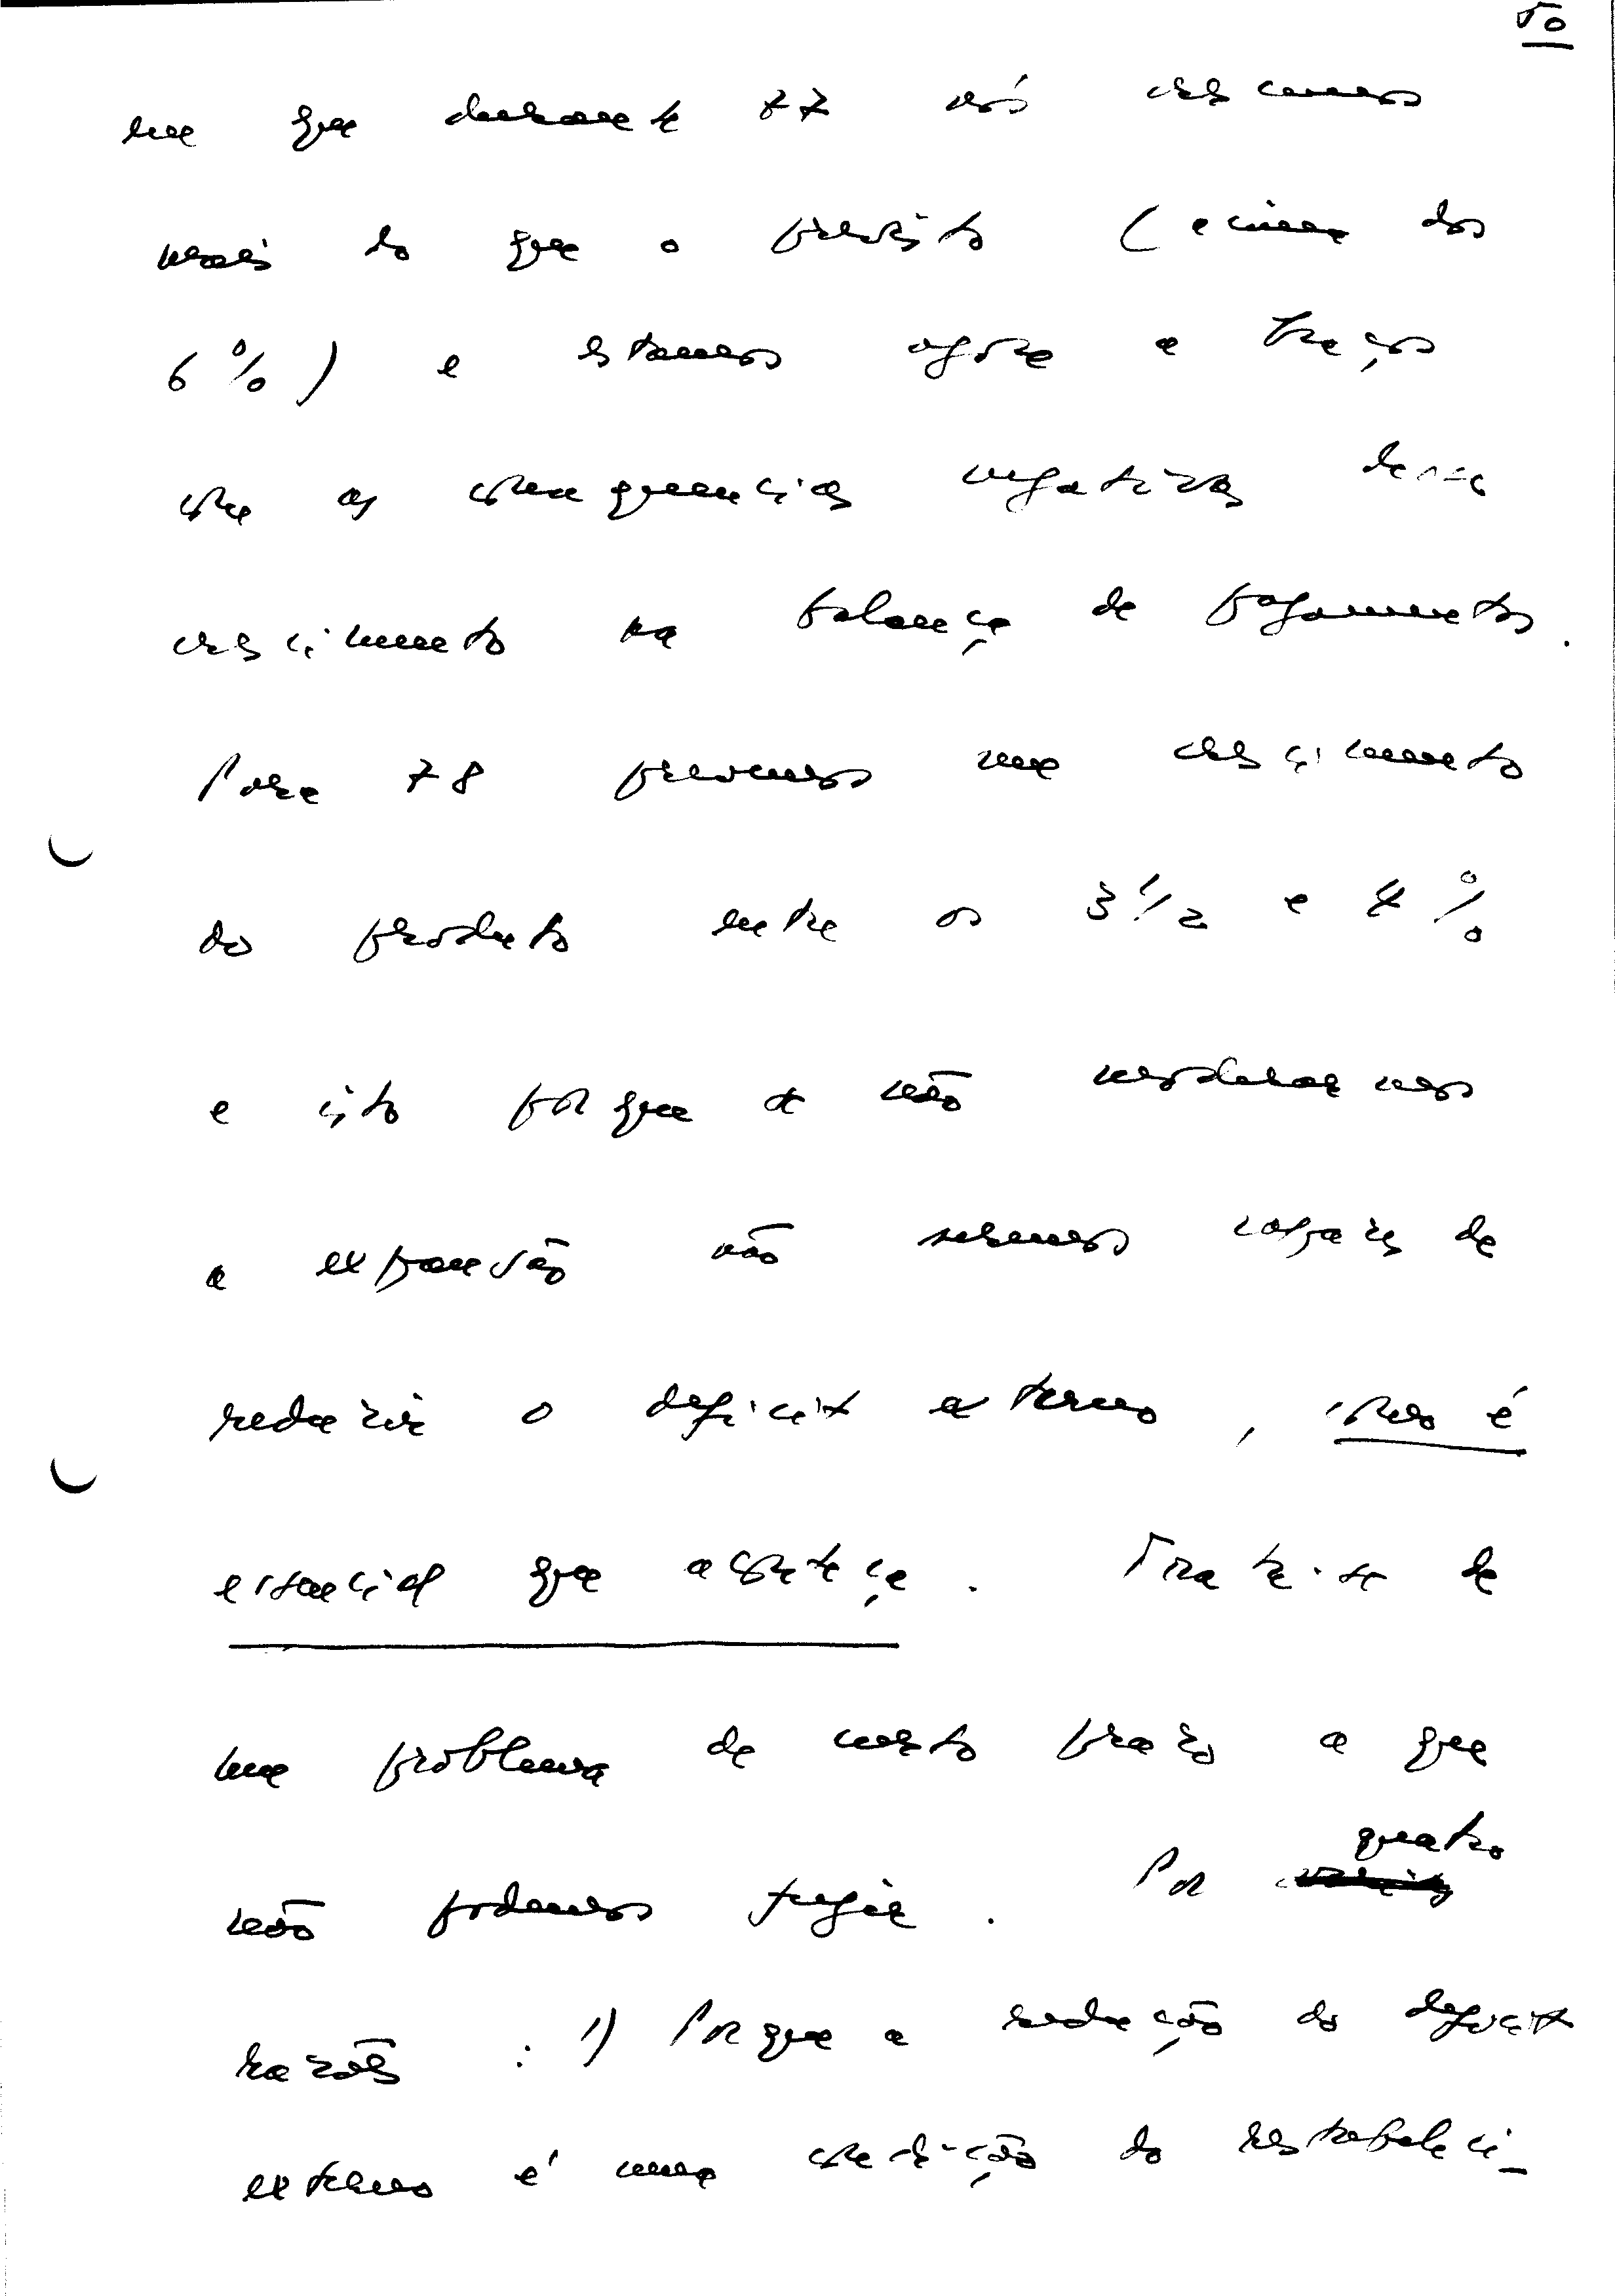 50
em que durante 77 nós crescemos
mais do que o previsto (acima dos
6%) e estamos agora a braços
com as consequencias negativas desse
crescimento na balança de pagamentos.
Para 78 prevemos um crescimento
do produto entre os 3 1/2 e 4%
e isto porque se não moderarmos
a expansão não seremos capazes de
reduzir o deficit externo, como é
essencial que aconteça. Trata-se de
um problema de curto prazo a que
não podemos fugir. Por quatro
razões: 1) Porque a redução do deficit
externo é uma condição do restabeleci-